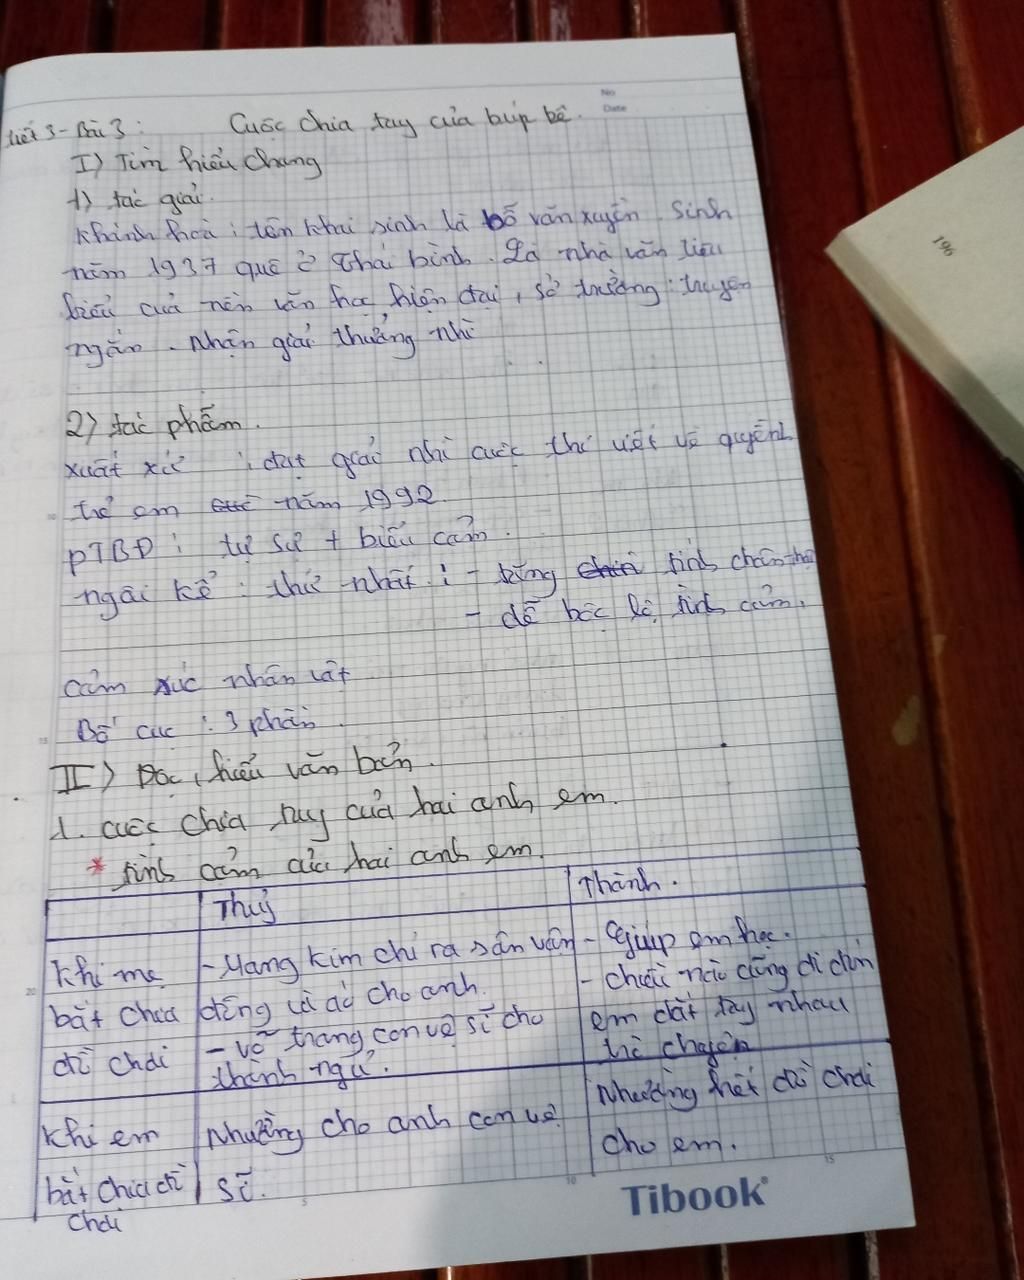 No
Date
tiết 3 - Bài 3: Cuộc chia tay của búp bê.
I) Tìm hiểu chung
1) tác giả.
Khánh hoà: tên khai sinh là bố văn xuyên. Sinh
năm 1937 quê ở Thái bình. Là nhà văn tiêu
biểu của nền văn học hiện đại, sở trường: truyện
ngắn. Nhận giải thưởng nhì
2) tác phẩm.
xuất xứ: đạt giải nhì cuộc thi viết về quyền
trẻ em năm 1992.
PTBĐ: tự sự + biểu cảm.
ngôi kể: thứ nhất: - tăng tính chân thự
- dễ bộc lộ tình cảm,
cảm xúc nhân vật
Bố cục: 3 phần.
II) Đọc, hiểu văn bản.
1. cuộc chia tay của hai anh em.
* tình cảm của hai anh em.
Thuỷ Thành.
khi mẹ - Mang kim chỉ ra sân vận - Giúp em học.
bắt chia động vá áo cho anh. - chiều nào cũng đi đón
đồ chơi - võ trang con vệ sĩ cho em dắt tay nhau
thành ngủ. trò chuyện
khi em Nhường cho anh con vệ Nhường hết đồ chơi
bắt chia đồ sĩ. cho em.
chơi
Tibook
196